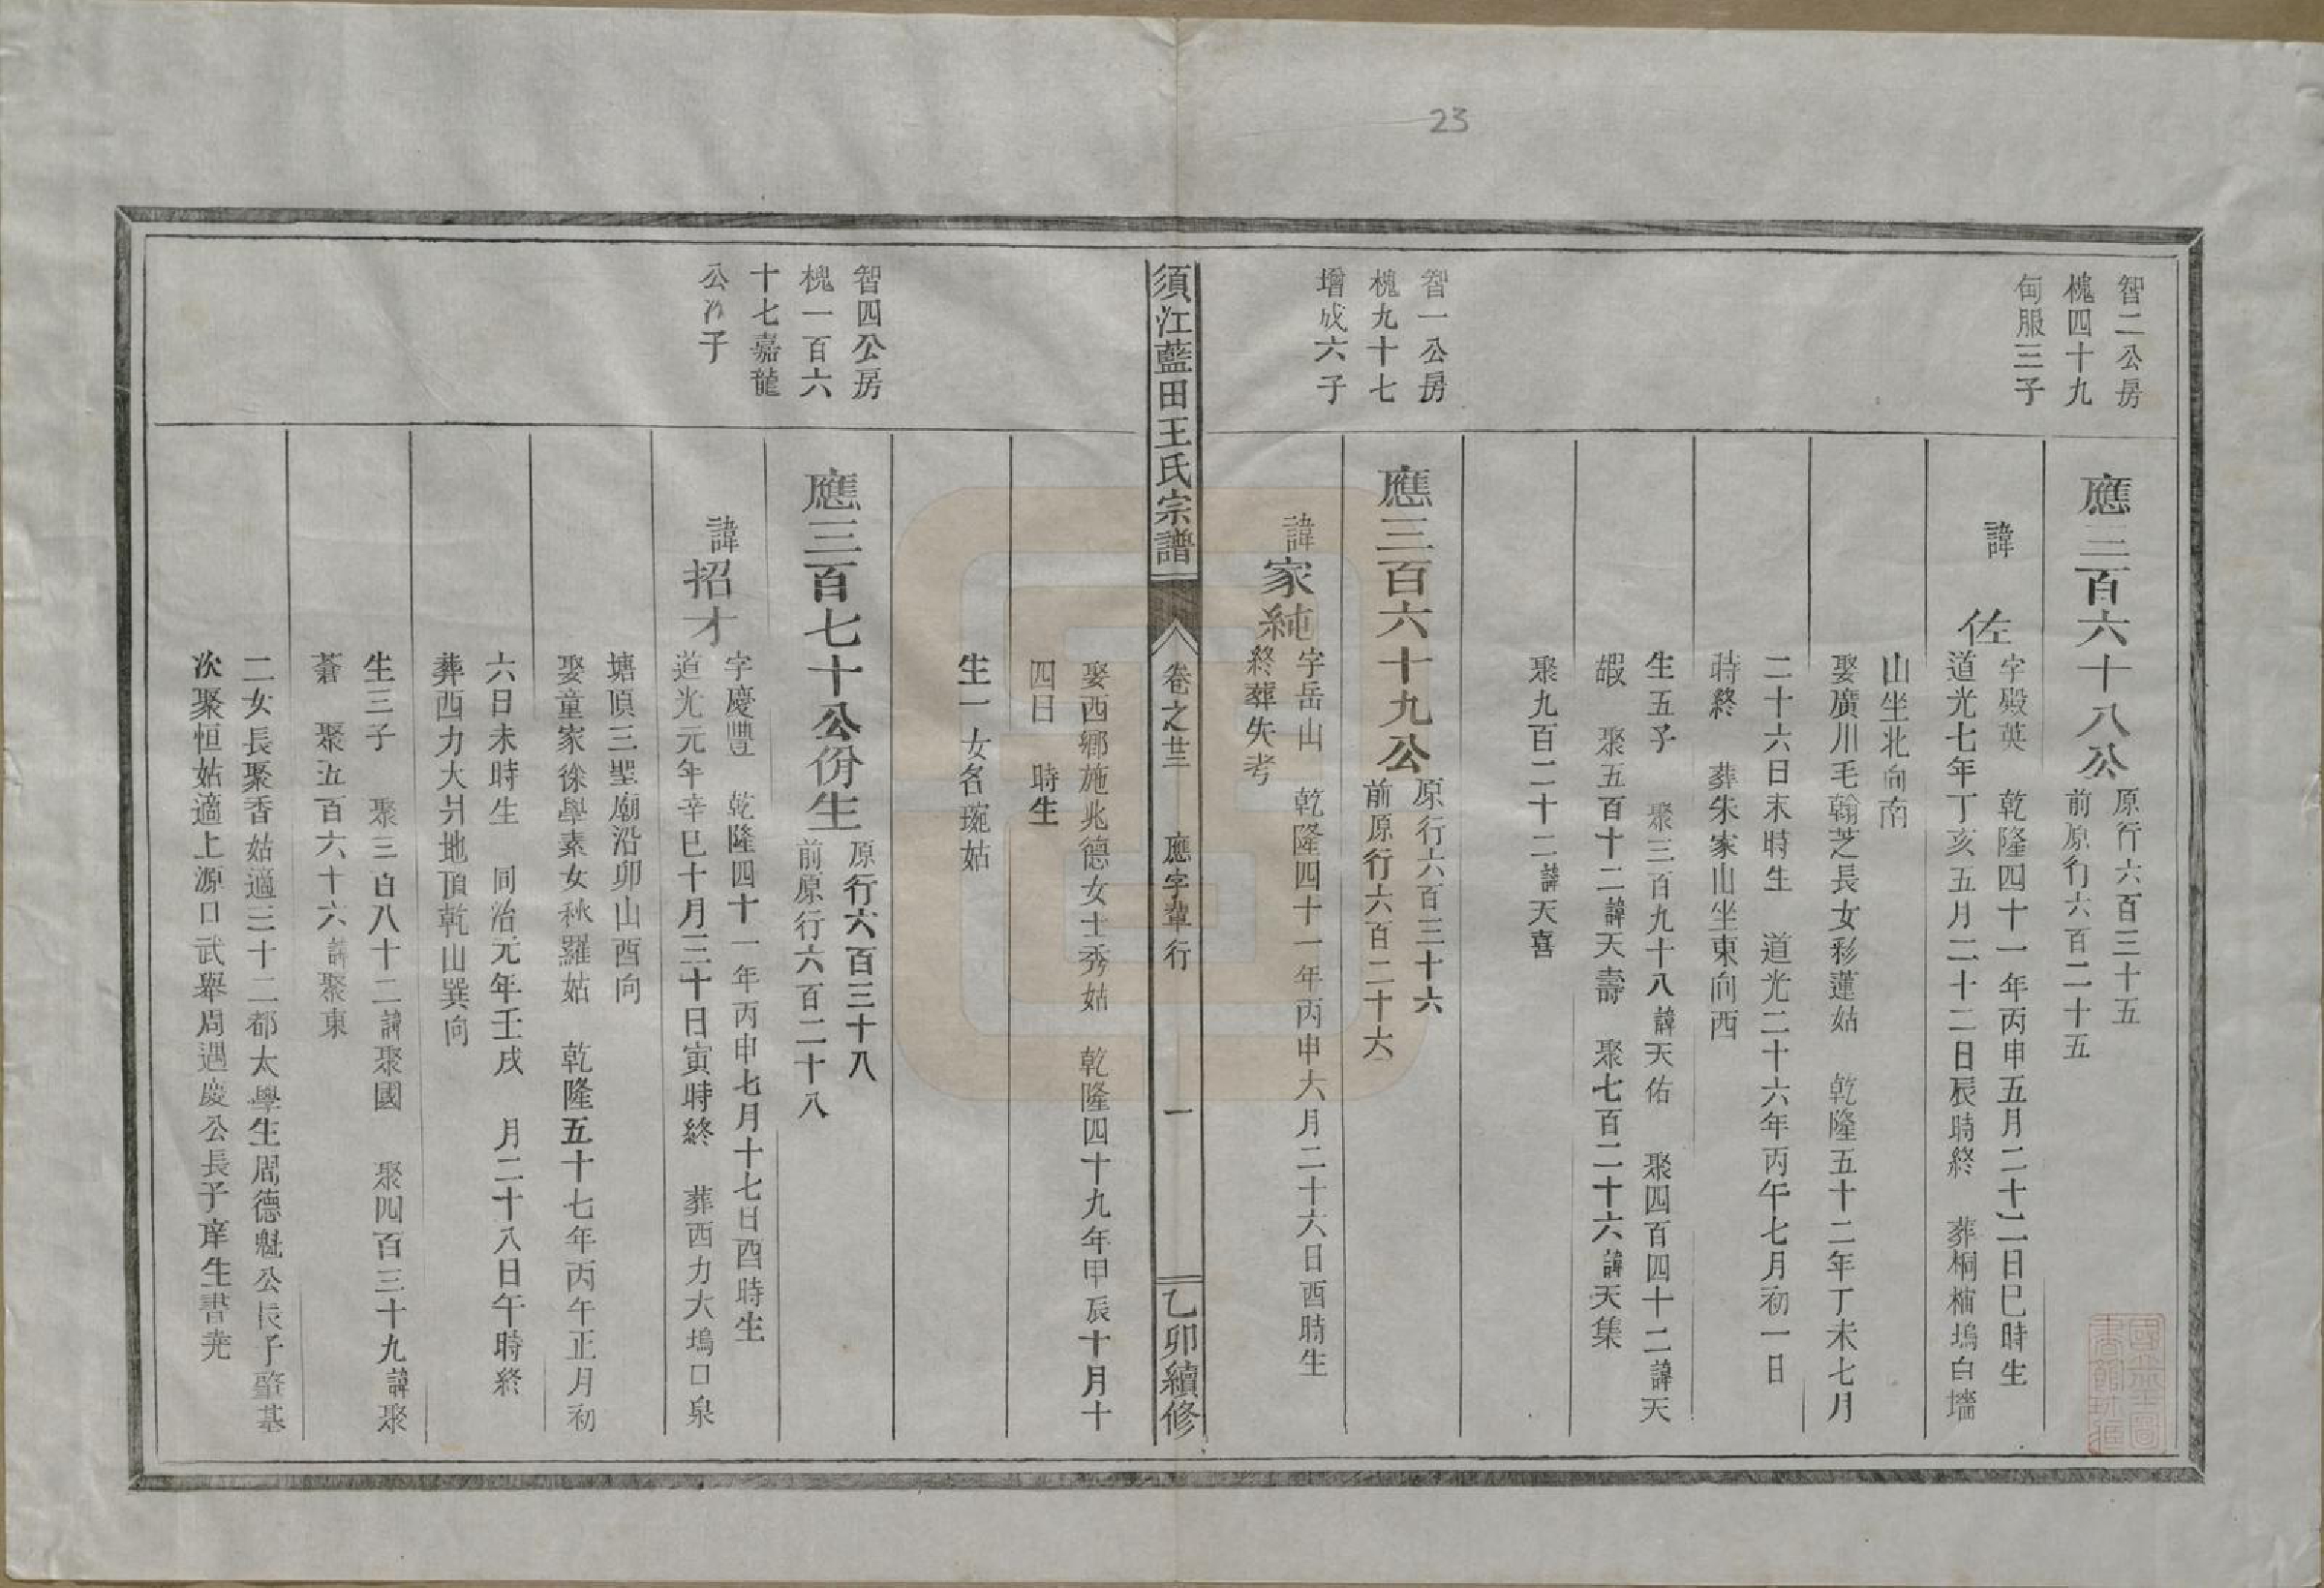 23
智二公房
槐四十九
甸服三子
應三百六十八公
原行六百三十五
前原行六百二十五
諱佐
字殿英 乾隆四十一年丙申五月二十二日巳時生
道光七年丁亥五月二十二日辰時終 葬桐楠塢白墻
山坐北向南
娶廣川毛翰芝長女彩蓮姑 乾隆五十二年丁未七月
二十六日未時生 道光二十六年丙午七月初一日
時終 葬朱家山坐東向西
生五子 聚三百九十八諱天佑 聚四百四十二諱天
嘏 聚五百十二諱天壽 聚七百二十六諱天集
聚九百二十二諱天喜
智一公房
槐九十七
增成六子
應三百六十九公
原行六百三十六
前原行六百二十六
諱家純
字岳山 乾隆四十一年丙申六月二十六日酉時生
終葬失考
須江藍田王氏宗譜
卷之廿三 應字輩行 一
乙卯續修
娶西鄉施兆德女士秀姑 乾隆四十九年甲辰十月十
四日 時生
生一女名琬姑
智四公房
槐一百六
十七嘉龍
公 子
應三百七十公份生
原行六百三十八
前原行六百二十八
諱招才
字慶豐 乾隆四十一年丙申七月十七日酉時生
道光元年辛巳十月三十日寅時終 葬西力大塢口泉
塘頂三聖廟沿卯山酉向
娶童家徐學素女秋羅姑 乾隆五十七年丙午正月初
六日未時生 同治元年壬戌 月二十八日午時終
葬西力大爿地頂乾山巽向
生三子 聚三百八十二諱聚國 聚四百三十九諱聚
蒼 聚五百六十六諱聚東
二女長聚香姑適三十二都太學生周德魁公長子肇基
次聚恒姑適上源口武舉周遇慶公長子庠生書尭